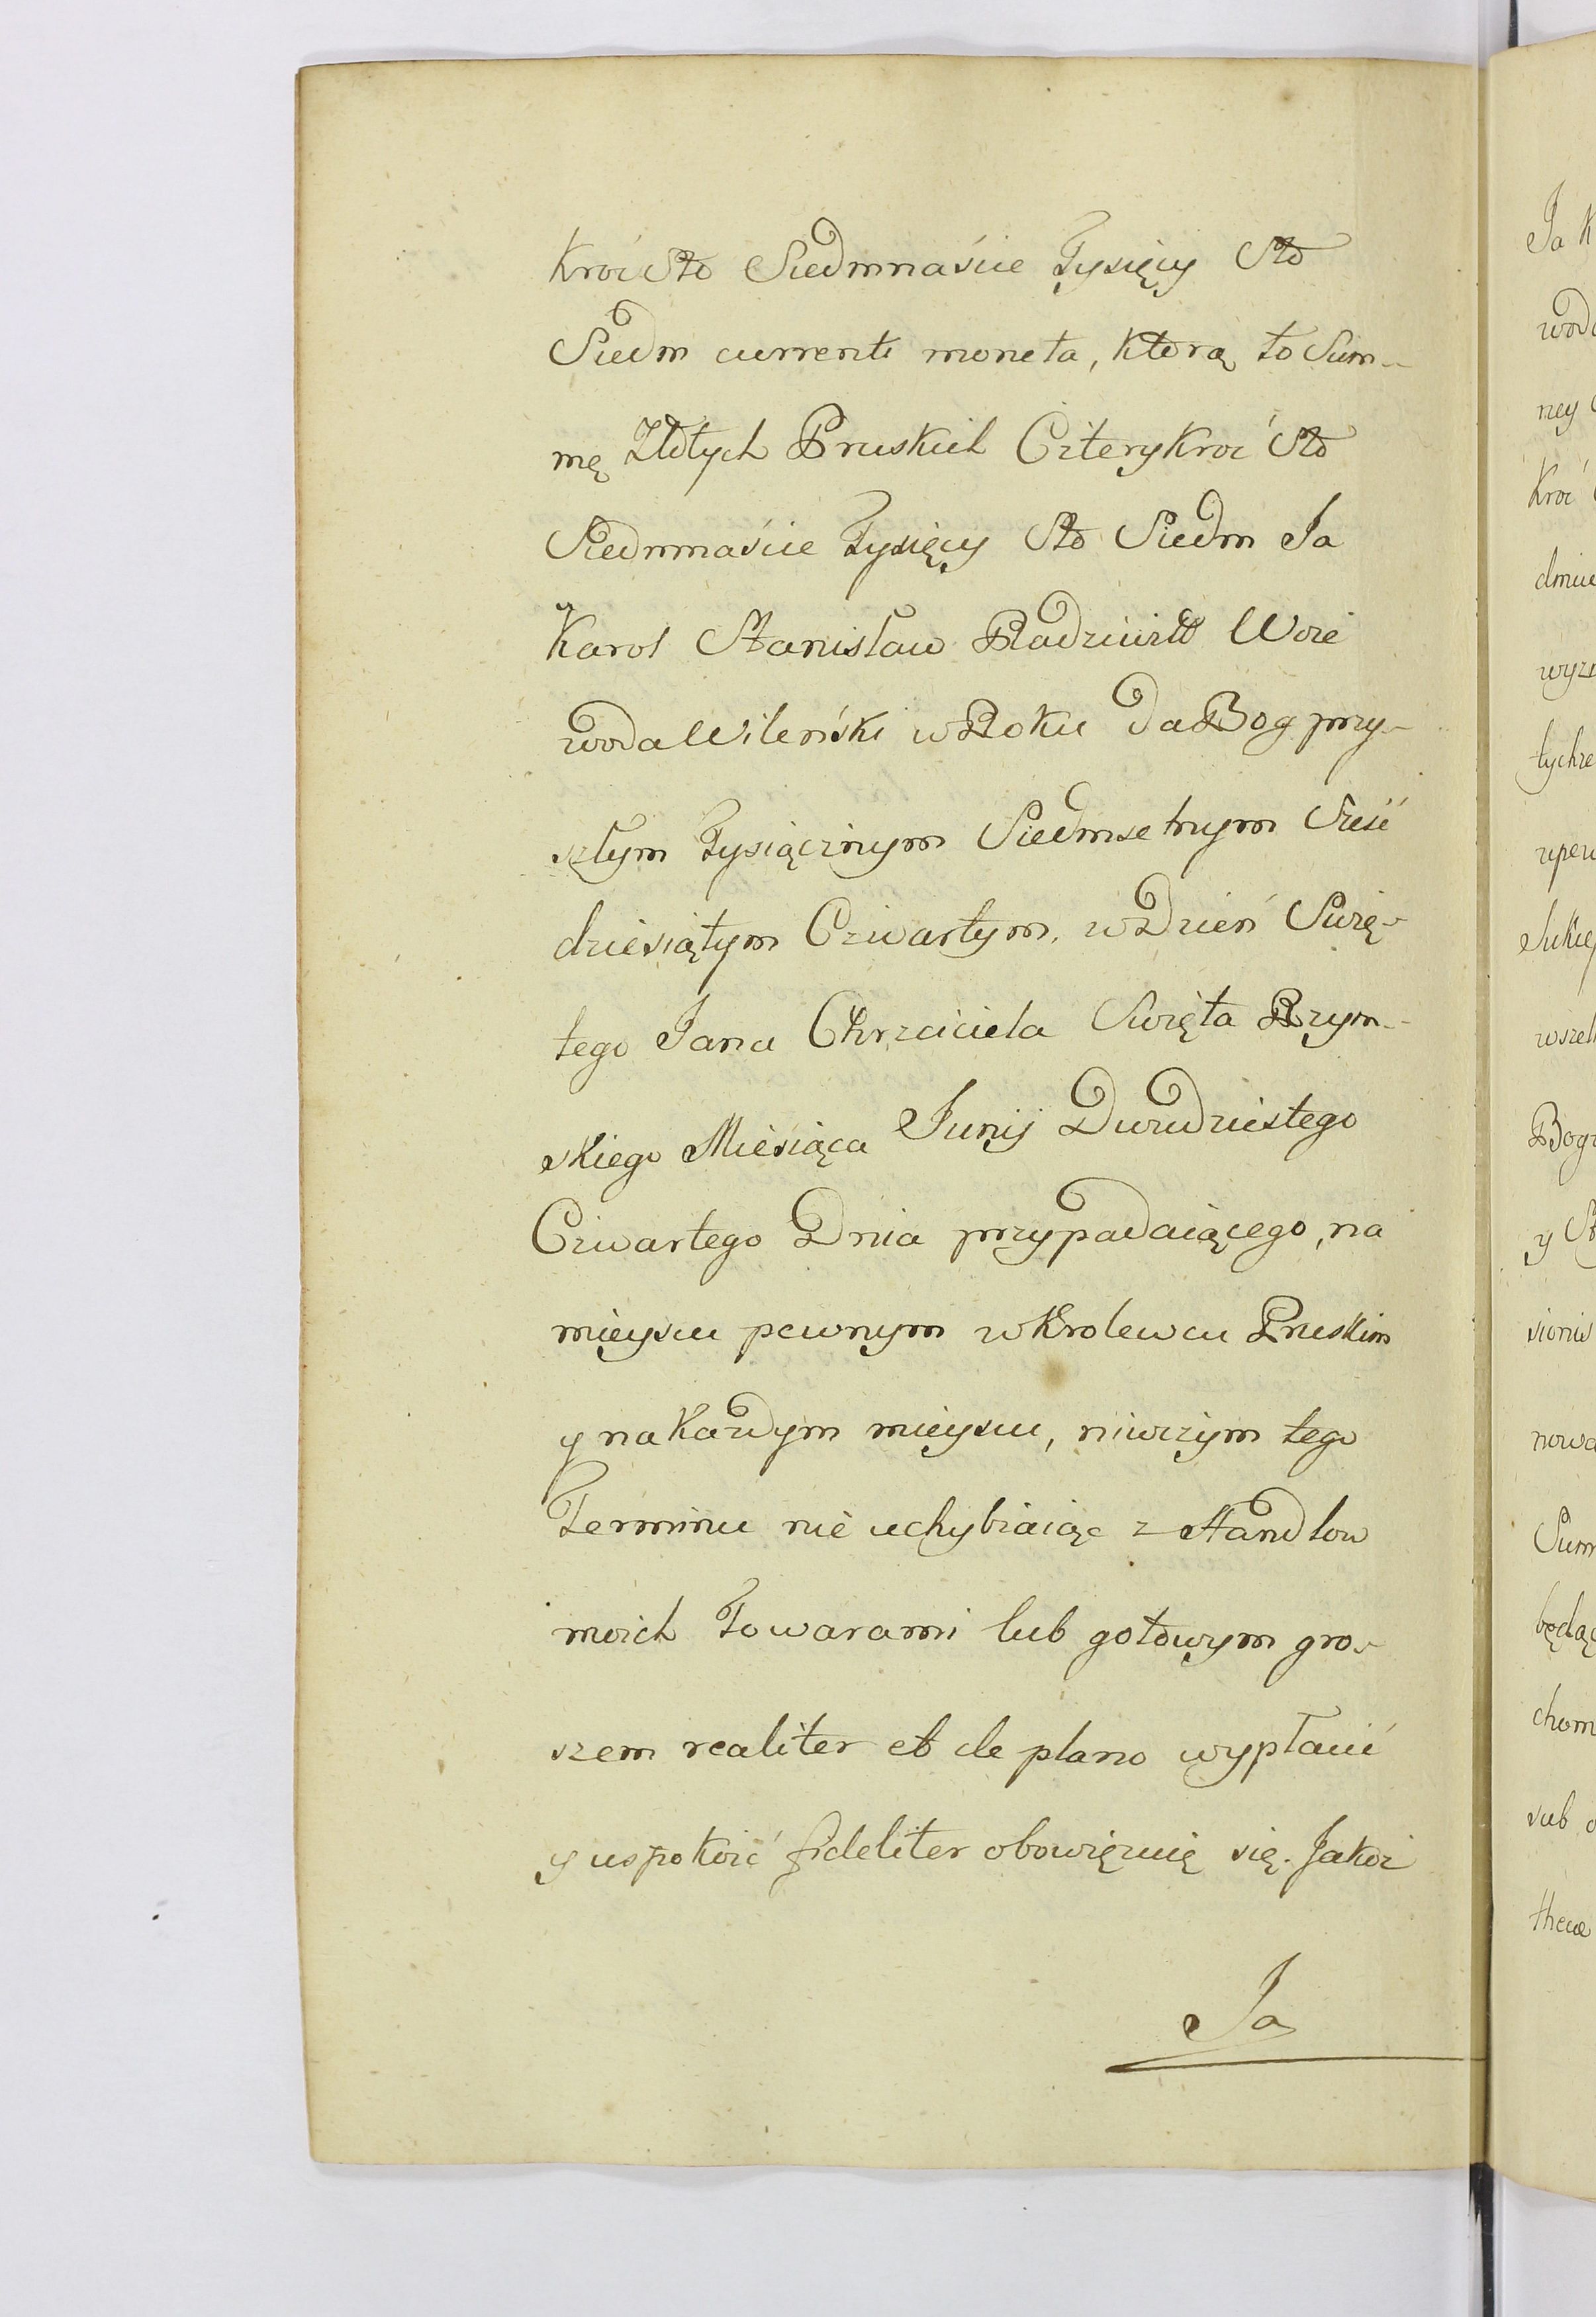 Kroć Sto Siedmnaście Tysięcy Sto
Siedm currenti moneta, Ktorą to Sum-
mę Złotych Pruskich Cztery Kroć Sto
Siedmnaście Tysięcy Sto Siedm Ja
Karol Stanisław Radziwiłł Woie
woda Wilenski w Roku da Bog przy-
szłym Tysiącznym Siedmsetnym Sześć
dziesiątym Czwartym, w Dzień Swię-
tego Jana Chrzciciela Swięta Rzym-
skiego Miesiąca Junij Dwudziestego
Czwartego Dnia przypadaiącego, na
mieyscu pewnym w Krolewcu Pruskim
y na Każdym mieyscu, niwczym tego
Terminu nie uchybiaiąc z Handlow
moich Towarami lub gotowym gro-
szem realiter et de plano wypłacić
y uspokoić fideliter obowięzuię się. Jakoż
Ja
Ja K
ney
Kroć
wyz
tychże
wszel
y St
nowa
Sum
będąc
sub